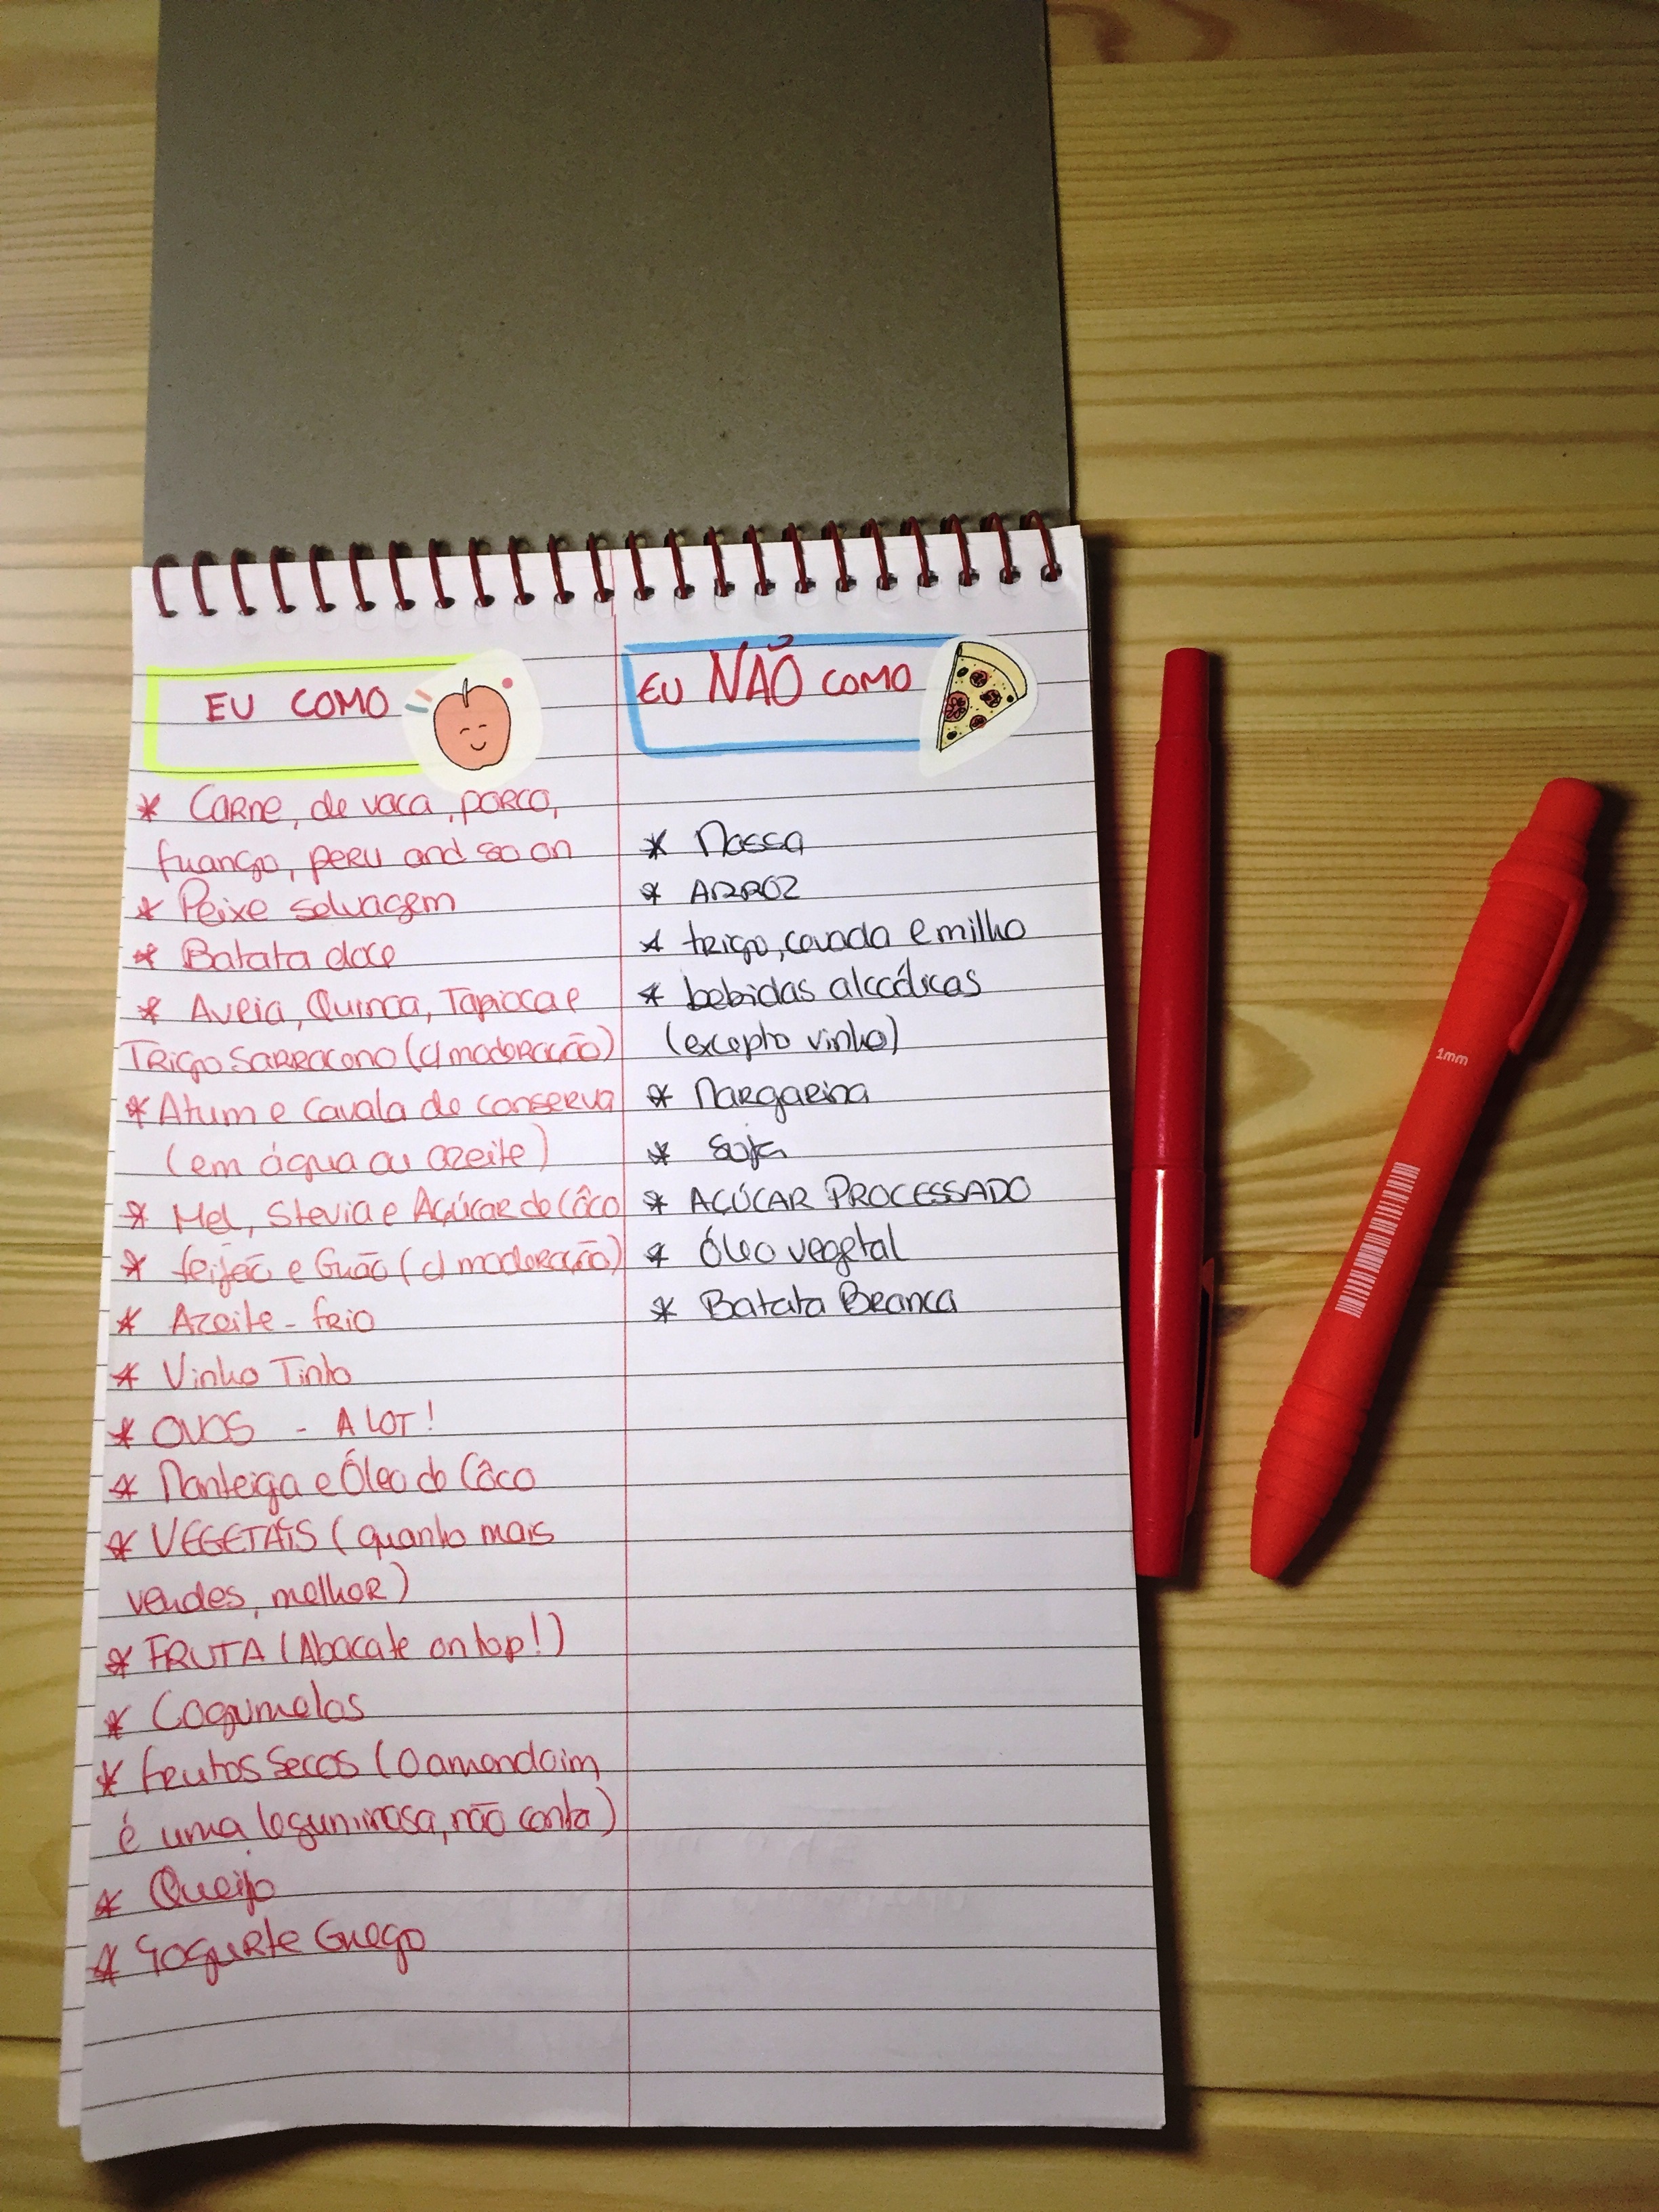 EU COMO
* Carne, de vaca, porco,
frango, peru and so on
* Peixe selvagem
* Batata doce
* Aveia, Quinoa, Tapioca e
Trigo Sarraceno (c/ moderação)
* Atum e Cavala de conserva
(em água ou azeite)
* Mel, Stevia e Açúcar do Côco
* feijão e Grão (c/ moderação)
* Azeite - frio
* Vinho Tinto
* OVOS - A LOT!
* Manteiga e Óleo do Côco
* VEGETAIS (quanto mais
verdes, melhor)
* FRUTA (Abacate on top!)
* Cogumelos
* frutos secos (o amendoim
é uma leguminosa, não conta)
* Queijo
* iogurte Grego
EU NÃO COMO
* Massa
* ARROZ
* trigo, cevada e milho
* bebidas alcoólicas
(excepto vinho)
* Margarina
* soja
* AÇÚCAR PROCESSADO
* Óleo vegetal
* Batata Branca
1mm